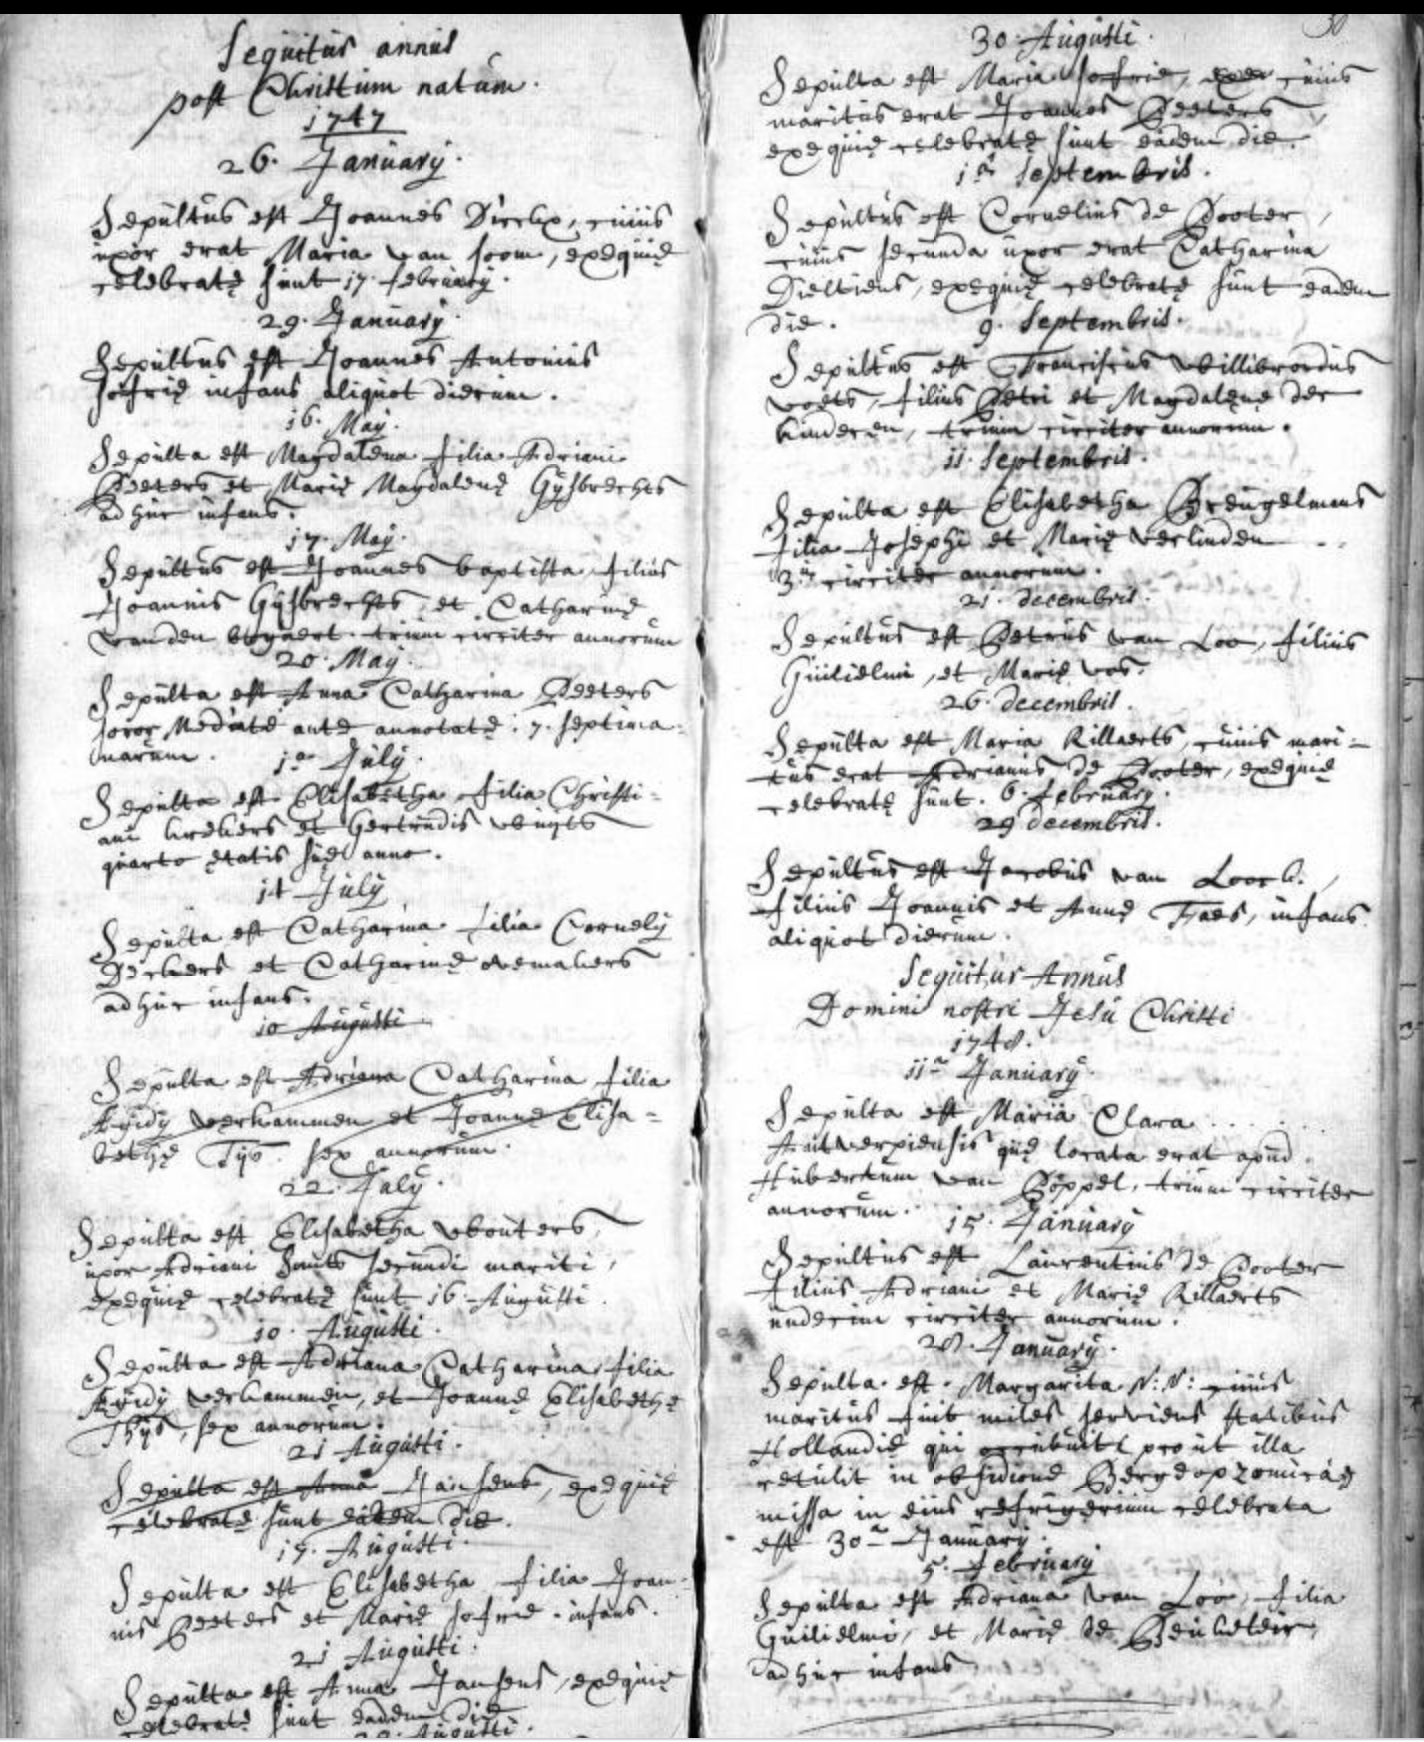 Sequitur annus
post Christum natum.
1747
26. January.
Sepultus est Joannes Dirckx, cuius
uxor erat Maria van loom, exequię
celebratę sunt 17. february.
29. January.
Sepultus est Joannes Antonius
infans aliquot dierum.
16. May.
Sepulta est Magdalena filia Adriani
Peeters et Marię Magdalenę Gÿsbrechts
adhuc infans.
17. May.
Sepultus est Joannes baptista filius
Joannis Gÿsbrechts et Catharinę
van den bogaert. trium circiter annorum
20. May.
Sepulta est Anna Catharina Peeters
soror Mediatę ante annotatę: 7. septima-
narum.
1a July.
Sepulta est Elisabetha filia Christi-
ani et Gertrudis
quarto ętatis suę anno.
14 July
Sepulta est Catharina filia Cornelÿ
Deckers et Catharinę
adhuc infans.
10 Augusti
Sepulta est Adriana Catharina filia
Ægidÿ verhammen et Joannę Elisa-
bethę Tÿs. sex annorum.
22. July.
Sepulta est Elisabetha wouters,
uxor Adriani secundi mariti,
exequię celebratę sunt 16. Augusti.
10. Augusti.
Sepulta est Adriana Catharina filia
Ægidÿ verhammen, et Joannę Elisabethę
Thÿs, sex annorum.
21 Augusti.
Sepulta est Anna Jansens, exequię
celebratę sunt eadem die.
17. Augusti.
Sepulta est Elisabetha filia Joan-
nis Peeters et Marię infans.
21 Augusti.
Sepulta est Anna Jansens, exequię
celebratę sunt eadem die
Augusti.
30
30. Augusti.
Sepulta est Maria cuius
maritus erat Joannes Peeters,
exequię celebratę sunt eadem die.
1a septembris.
Sepultus est Cornelius de Pooter,
cuius secunda uxor erat Catharina
Dieltiens, exequię celebratę sunt eadem
die.
9. Septembris.
Sepultus est Franciscus willibrordus
voets, filius Petri et Magdalenę der
kinderen, trium circiter annorum.
11. Septembris.
Sepulta est Elisabetha Breugelmans
filia Josephi et Marię verlinden
3um circiter annorum.
21. decembris.
Sepultus est Petrus van Loo, filius
Guilielmi, et Marię vos.
26. decembris.
Sepulta est Maria Rillaerts, cuius mari-
tus erat Adrianus de Pooter, exequię
celebratę sunt. 6. february.
29 decembris.
Sepultus est Jacobus van Loock.
filius Joannis et Annę Faes, infans
aliquot dierum.
Sequitur Annus
Domini nostri Jesu Christi
1748.
11a January.
Sepulta est Maria Clara ....
Antverpiensis quę locata erat apud
Hubertum van Poppel, trium circiter
annorum.
15. January
Sepultus est Laurentius de Pooter
filius Adriani et Marię Rillaerts
undecim circiter annorum.
28. January.
Sepulta est Margarita N: N: cuius
maritus fuit miles serviens statibus
Hollandię qui occubuit prout illa
retulit in obsidione
missa in eius refrigerium celebrata
est 30a January.
5. february
Sepulta est Adriana van Loo, filia
Guilielmi, et Marię de
adhuc infans